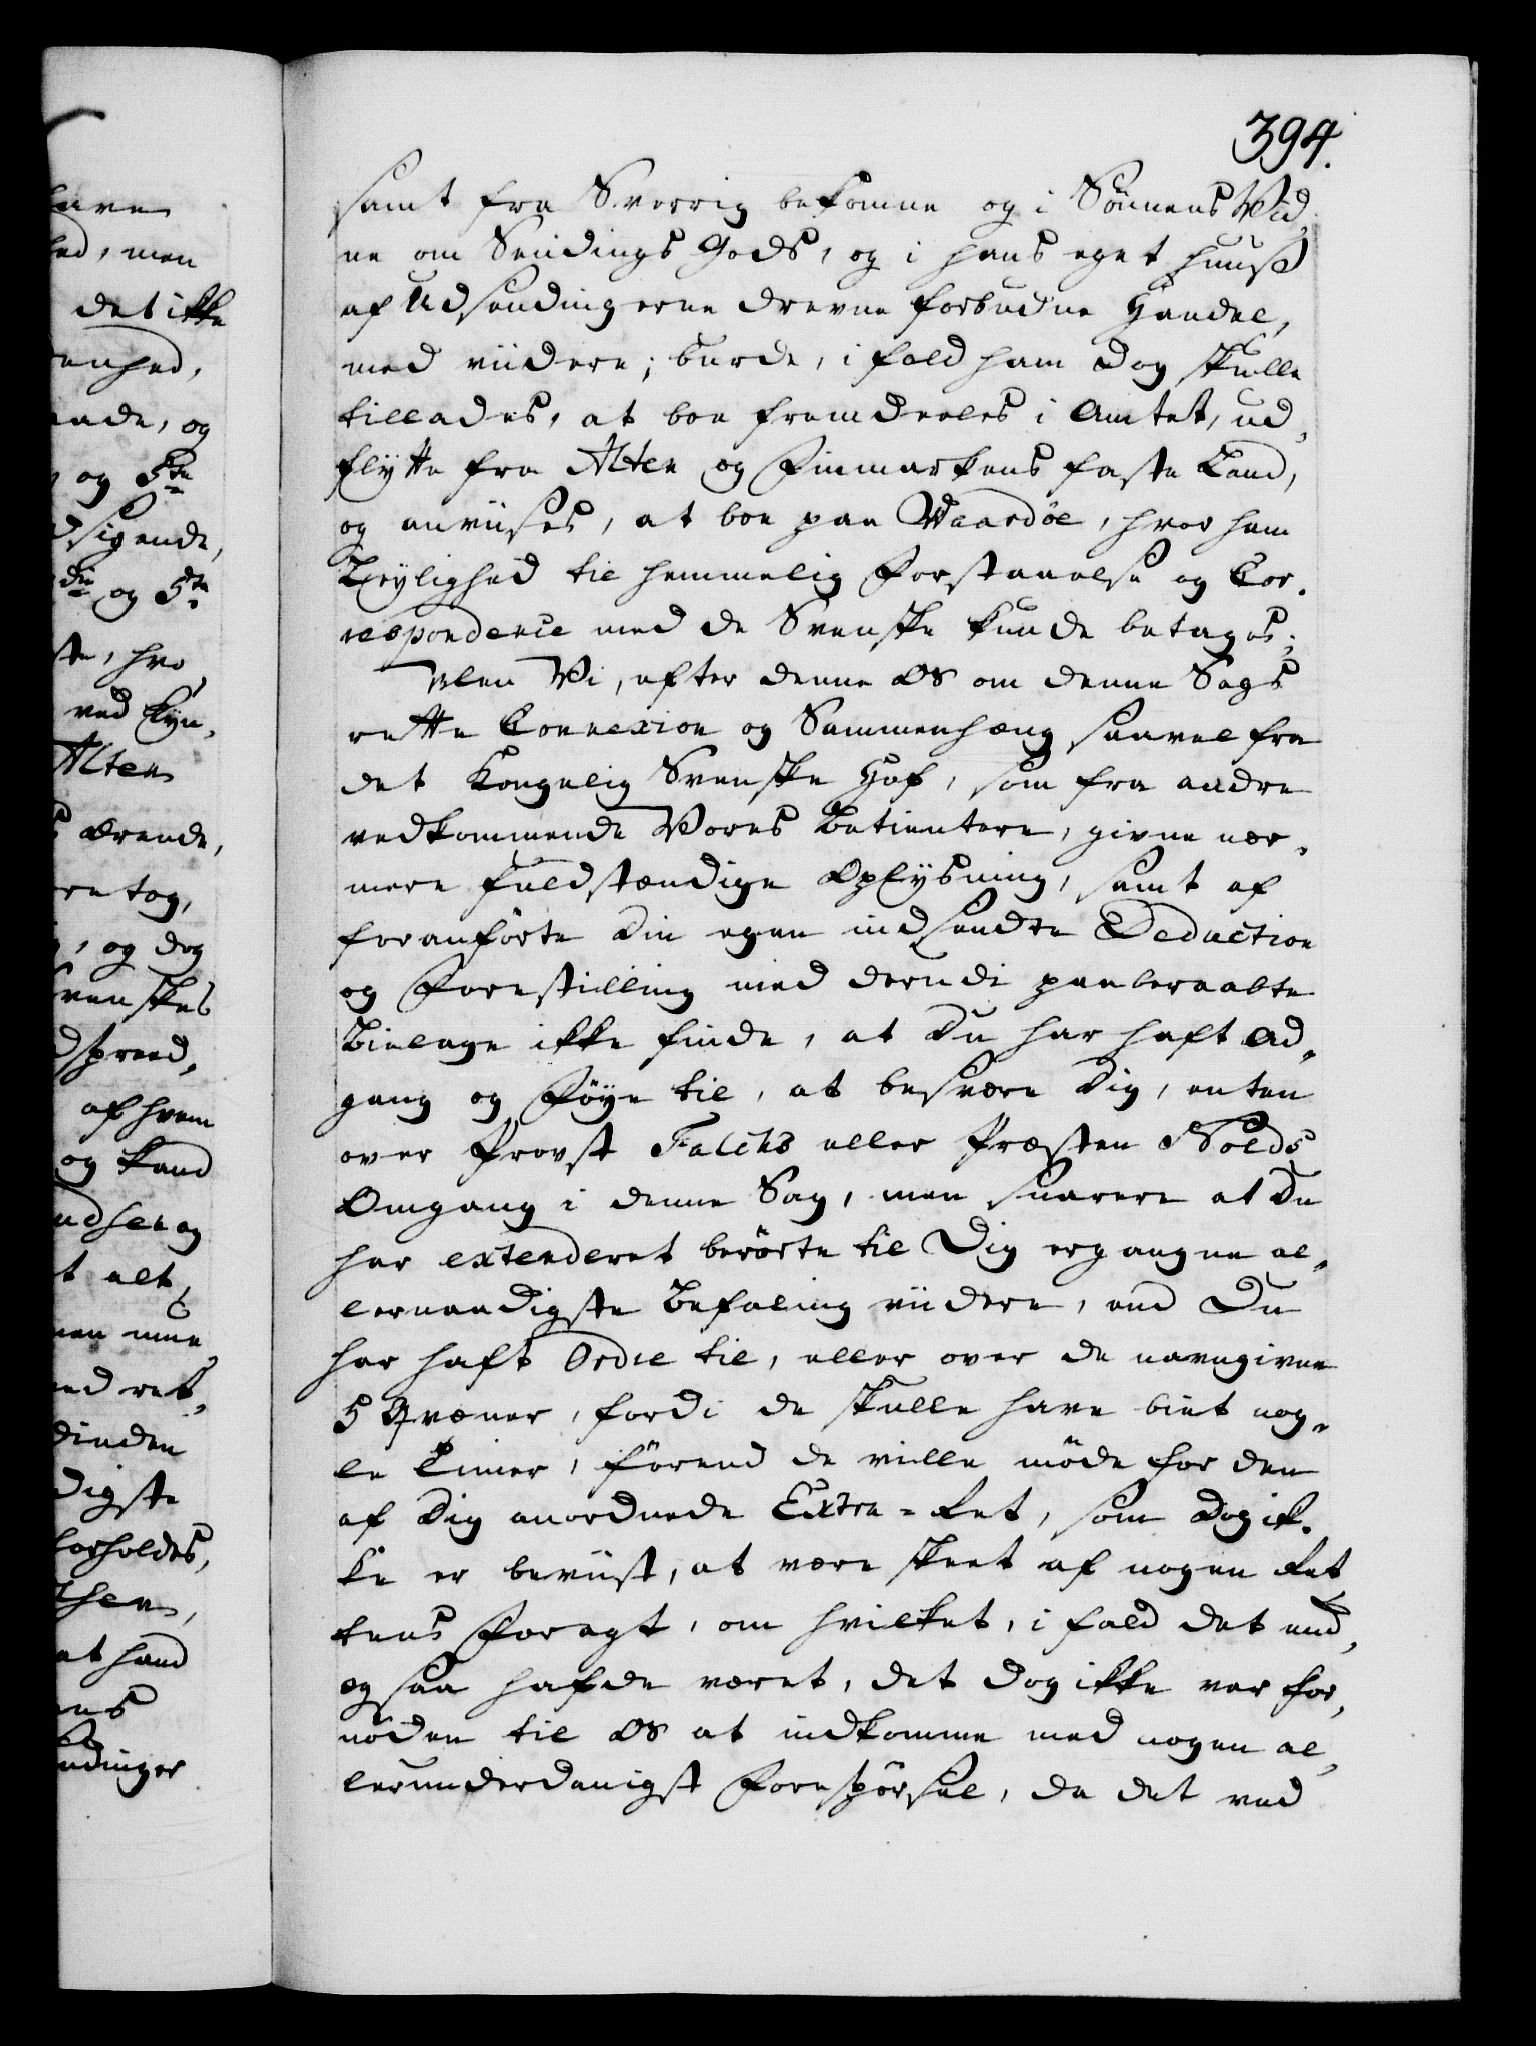 394.
samt fra Sverrig bekomne og i Sönnens Vid,
ne om Sendings Gods, og i hans eget Huuß
af Udsendingerne drevne forbudne Handel,
med viidere; burde, i fald ham dog skulle
tillades, at boe fremdeeles i Amtet, ud,
flytte fra Alten og Finmarkens faste Land,
og anviises, at boe paa Waardöe, hvor ham
Leylighed til hemmelig Forstaaelse og Cor,
respondence med de Svenske kunde betages;
Men Vi, efter denne OS om denne Sags
rette Connexion og Sammenhæng saavel fra
det Kongelig Svenske Hof, som fra andre
vedkommende Vores Betientere, givne nær,
mere fuldstændige Oplysning, samt af
foranförte Din egen indsendte Deduction
og Forestilling med derudi paaberaabte
Bielage ikke finde, at Du har haft Ad,
gang og Föye til, at besvære Dig, enten
over Provst Falchs eller Præsten Nolds
Omgang i denne Sag, men snarere at Du
har extenderet berörte til Dig ergangne al,
lernaadigste Befaling viidere, end Du
har haft Ordre til, eller over de navngivne
5 Qvæner, fordi de skulle have biet nog,
le Timer, förend de ville möde for den
af Dig anordnede Extra-Ret, som dog ik,
ke er beviist, at være skeet af nogen Ret,
tens Foragt, om hvilket, i fald det end,
og saa hafde været, det dog ikke var for,
nöden til OS at indkomme med nogen al,
lerunderdanigst Forespörsel, da det ved